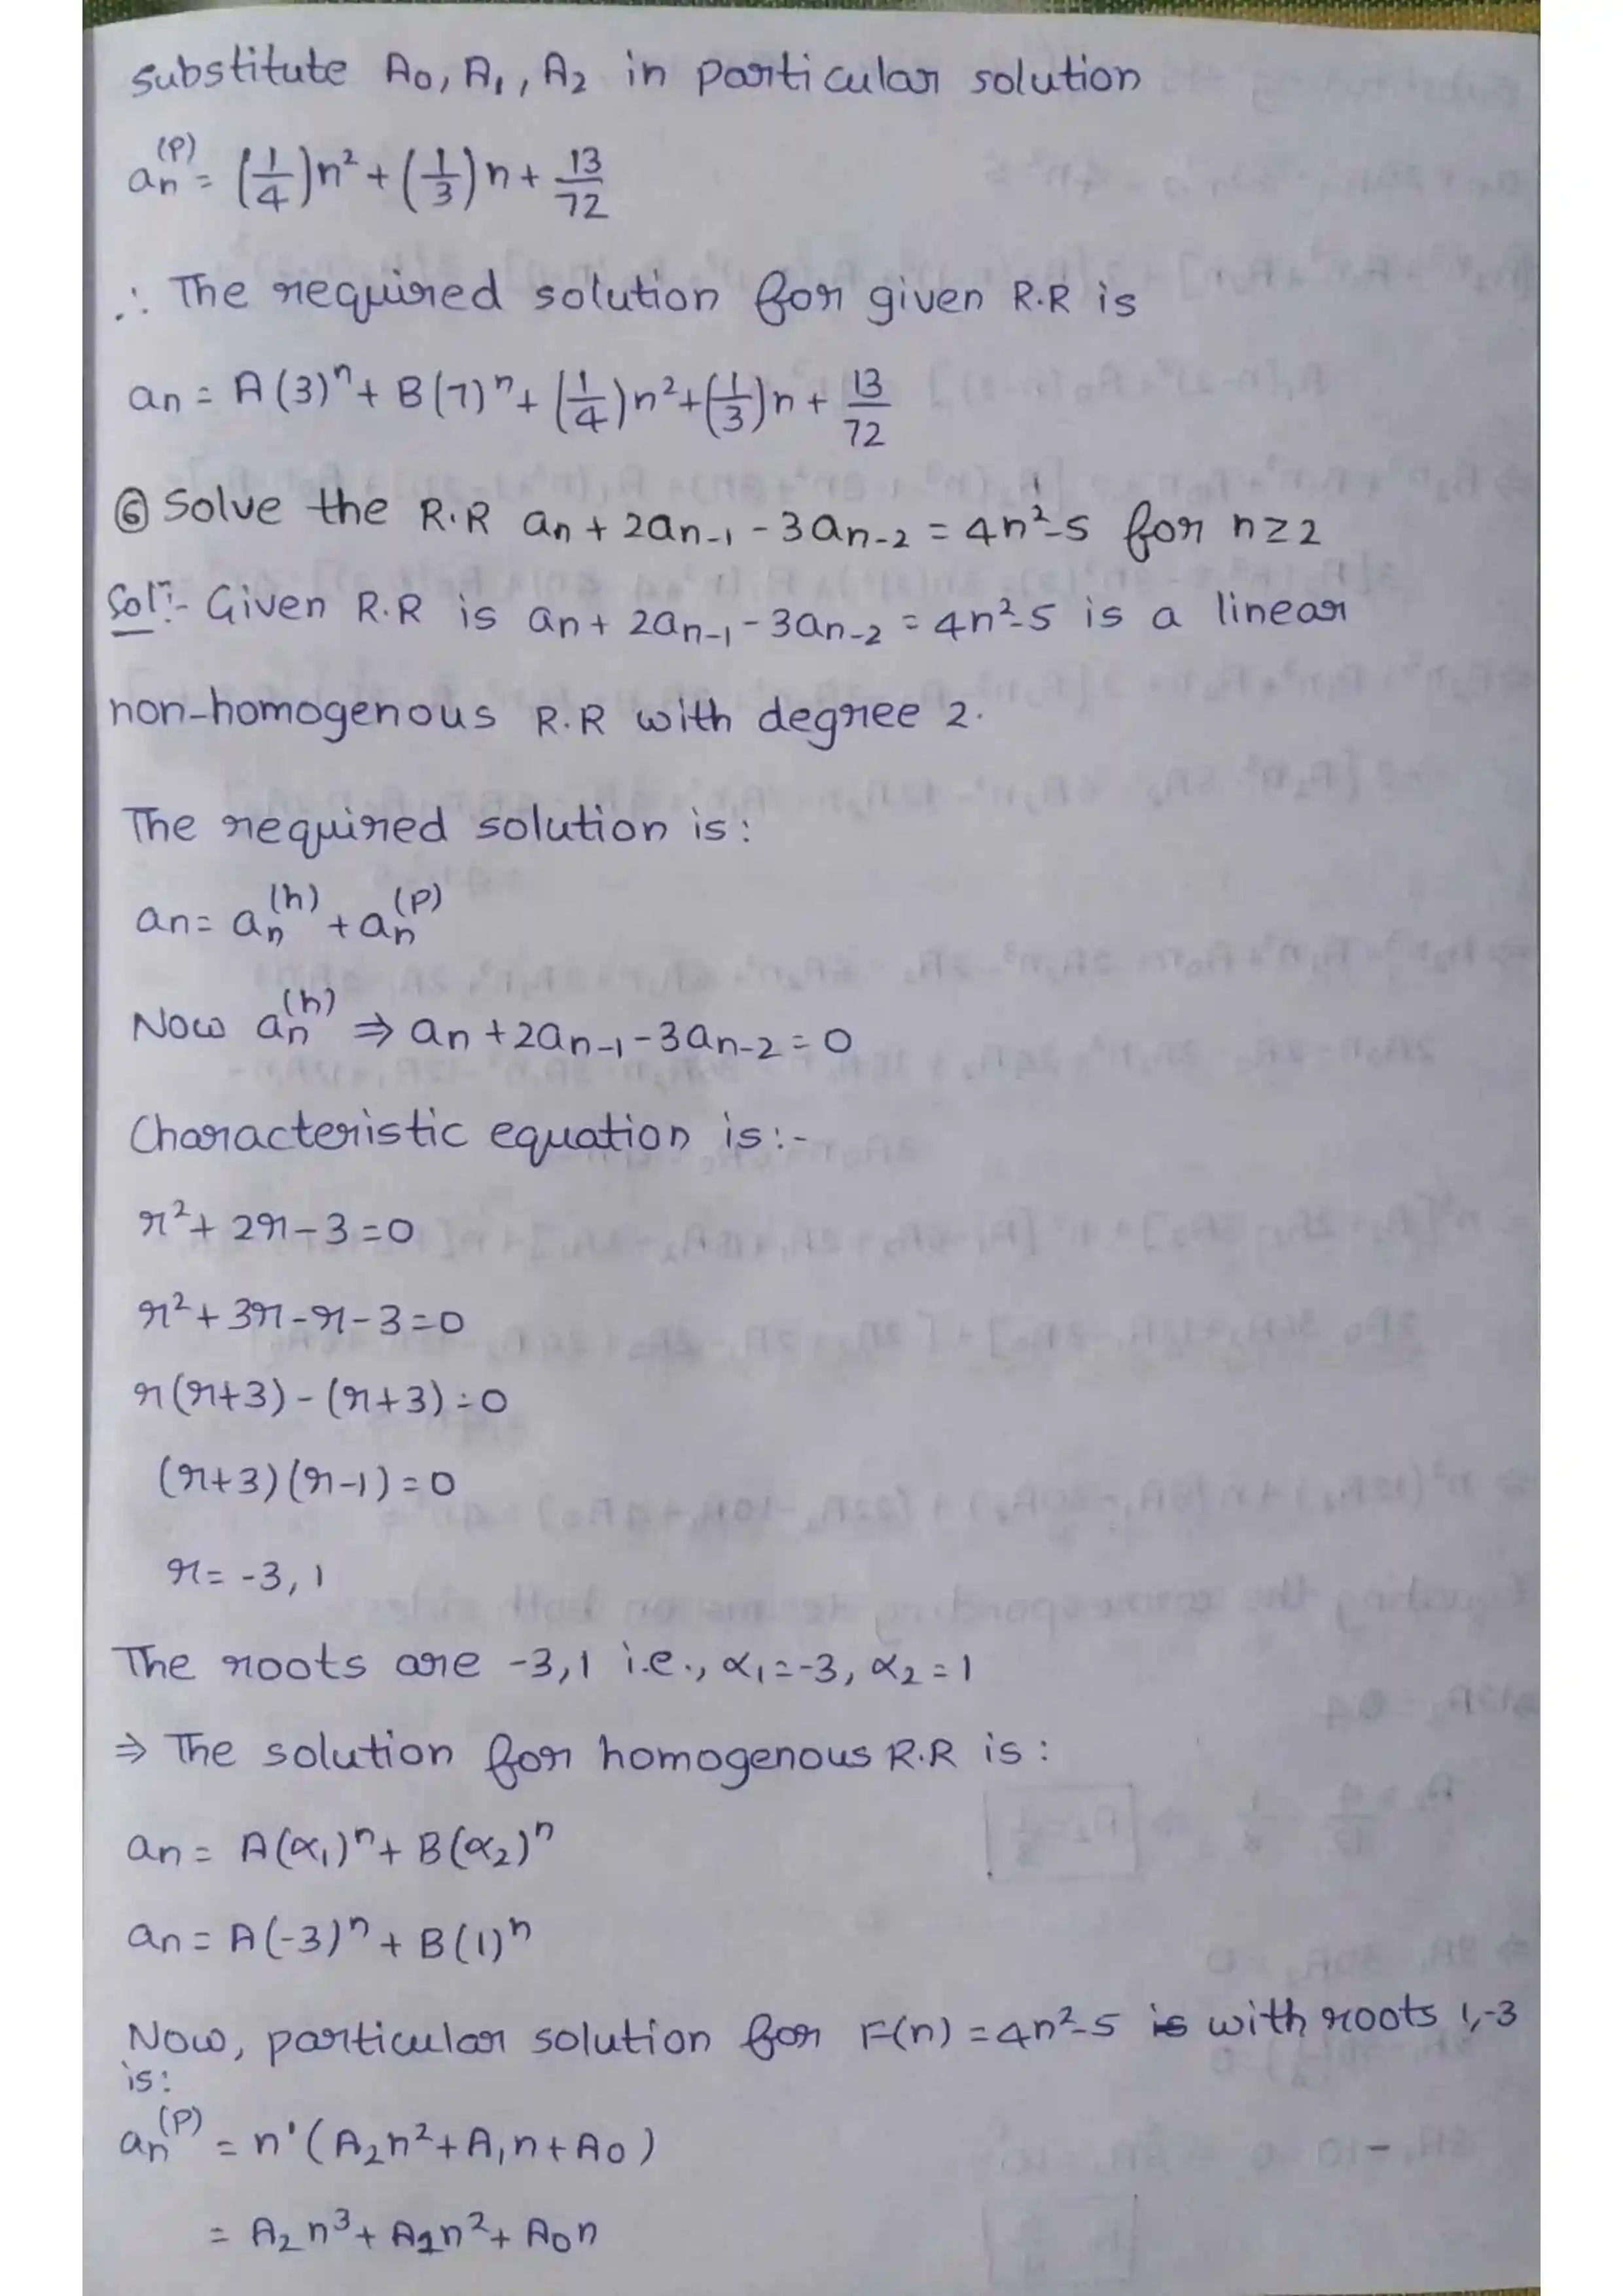 substitute A₀, A₁, A₂ in particular solution
aₙ⁽ᴾ⁾ = (1/4)n² + (1/3)n + 13/72
∴ The required solution for given R.R is
aₙ = A(3)ⁿ + B(7)ⁿ + (1/4)n² + (1/3)n + 13/72
⑥ Solve the R.R aₙ + 2aₙ₋₁ - 3aₙ₋₂ = 4n²-5 for n≥2
Solⁿ:- Given R.R is aₙ + 2aₙ₋₁ - 3aₙ₋₂ = 4n²-5 is a linear
non-homogenous R.R with degree 2.
The required solution is:
aₙ = aₙ⁽ʰ⁾ + aₙ⁽ᴾ⁾
Now aₙ⁽ʰ⁾ ⇒ aₙ + 2aₙ₋₁ - 3aₙ₋₂ = 0
Characteristic equation is:-
r² + 2r - 3 = 0
r² + 3r - r - 3 = 0
r(r+3) - (r+3) = 0
(r+3)(r-1) = 0
r = -3, 1
The roots are -3,1 i.e., α₁ = -3, α₂ = 1
⇒ The solution for homogenous R.R is:
aₙ = A(α₁)ⁿ + B(α₂)ⁿ
aₙ = A(-3)ⁿ + B(1)ⁿ
Now, particular solution for F(n) = 4n²-5 is with roots 1,-3
is:
aₙ⁽ᴾ⁾ = n¹(A₂n² + A₁n + A₀)
= A₂n³ + A₁n² + A₀n